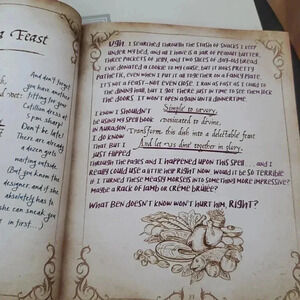 a Feast
And don't forget
you have another
fitting for your
Cotillion dress at
5 p.m. sharp.
Don't be late!
There are already
a dozen girls
waiting outside.
(But you know the
designer, and if she
absolutely has to
she can sneak you
in first...)
UGH. I SEARCHED THROUGH THE STASH OF SNACKS I KEEP
UNDER MY BED, AND ALL I HAVE IS A JAR OF PEANUT BUTTER,
THREE PACKETS OF JELLY, AND TWO SLICES OF DAY-OLD BREAD.
EVIE DONATED A COOKIE TO MY CAUSE, BUT IT LOOKS PRETTY
PATHETIC, EVEN WHEN I PUT IT ALL TOGETHER ON A FANCY PLATE.
IT'S NOT A FEAST—NOT EVEN CLOSE. I RAN AS FAST AS I COULD TO
THE DINING HALL, BUT I GOT THERE JUST IN TIME TO SEE THEM LOCK
THE DOORS. IT WON'T OPEN AGAIN UNTIL DINNERTIME.
I KNOW I SHOULDN'T
BE USING MY SPELL BOOK
IN AURADON.
I DO KNOW
THAT. BUT I
JUST FLIPPED
Simple to savory,
Delicated to divine,
Transform this dish into a delectable feast
And let us dine together in glory.
THROUGH THE PAGES AND I HAPPENED UPON THIS SPELL . . . AND I
REALLY COULD USE A LITTLE HELP RIGHT NOW. WOULD IT BE SO TERRIBLE
IF I TURNED THESE MEASLY MORSELS INTO SOMETHING MORE IMPRESSIVE?
MAYBE A RACK OF LAMB OR CRÈME BRÛLÉE?
WHAT BEN DOESN'T KNOW WON'T HURT HIM, RIGHT?